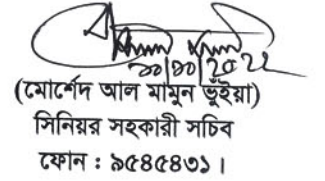 ২০|১০|২০২২
(মোর্শেদ আল মামুন ভূঁইয়া)
সিনিয়র সহকারী সচিব
ফোন : ৯৫৪৫৪৩১।